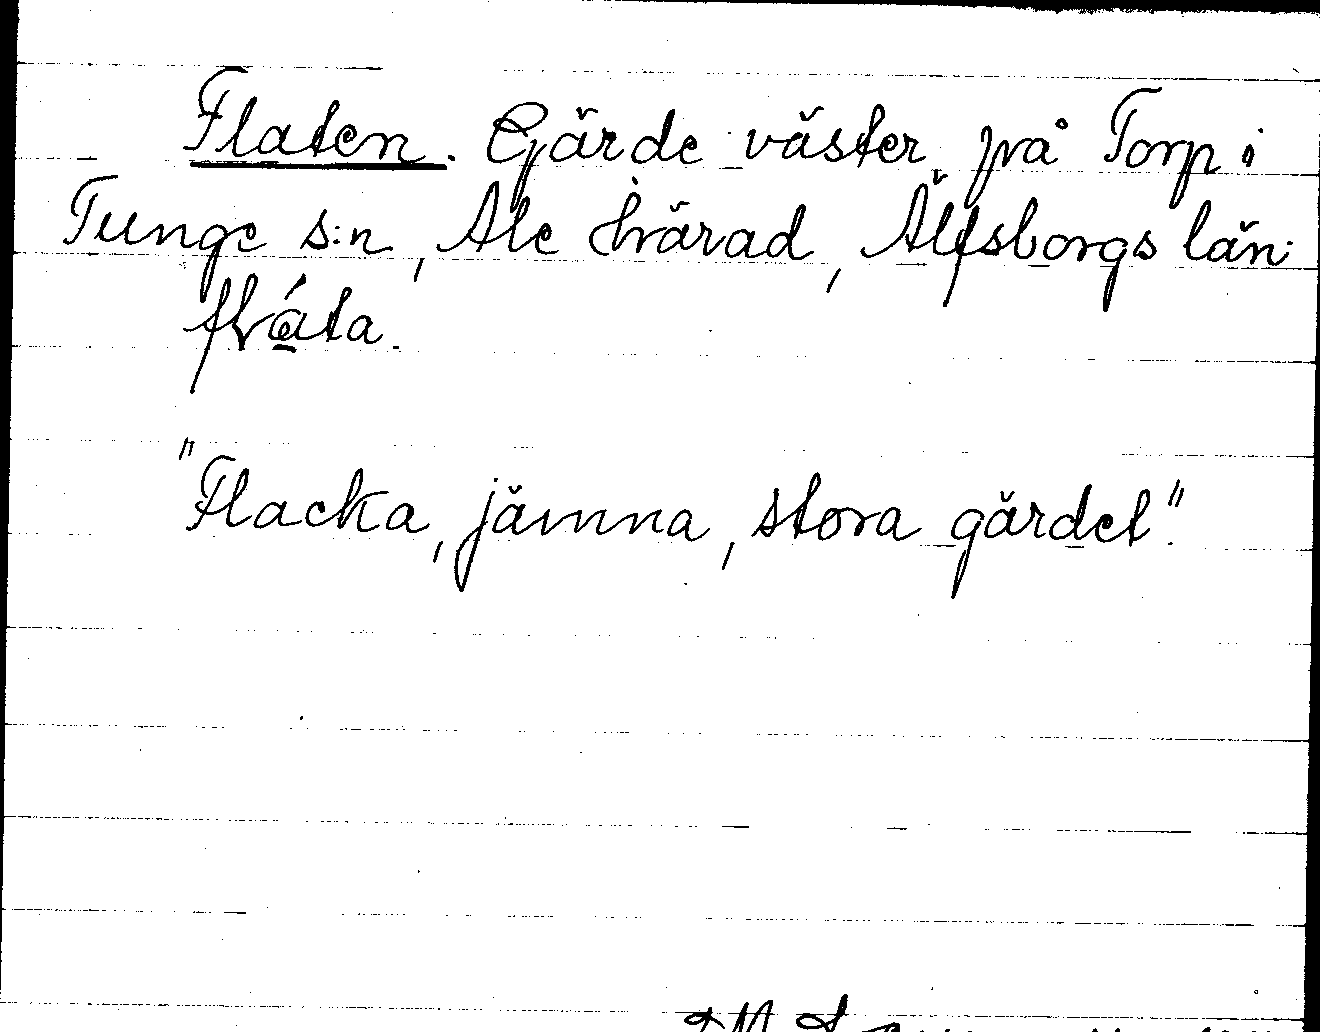 Flaten. Gärde väster på Torp i
Tunge s:n, Ale härad, Älfsborgs län.
flata.
"Flacka, jämna, stora gärdet".